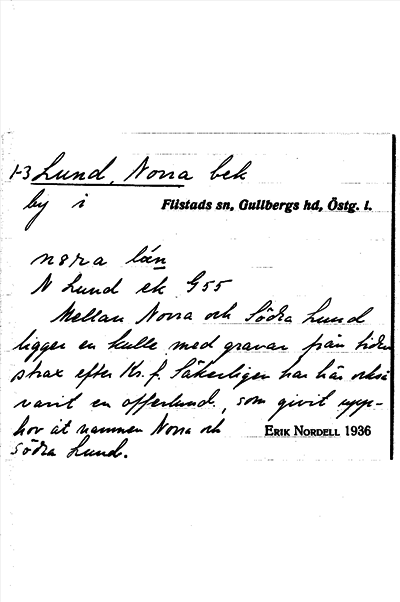 1-3 Lund, Norra bek
by i Flistads sn, Gullbergs hd, Östg. l.
nora lún
N Lund ek G55
Mellan Norra och Södra Lund
ligger en kulle med gravar från tiden
strax efter Kr. f. Säkerligen har här också
varit en offerlund, som givit upp-
hov åt namnen Norra och
Södra Lund.
ERIK NORDELL 1936